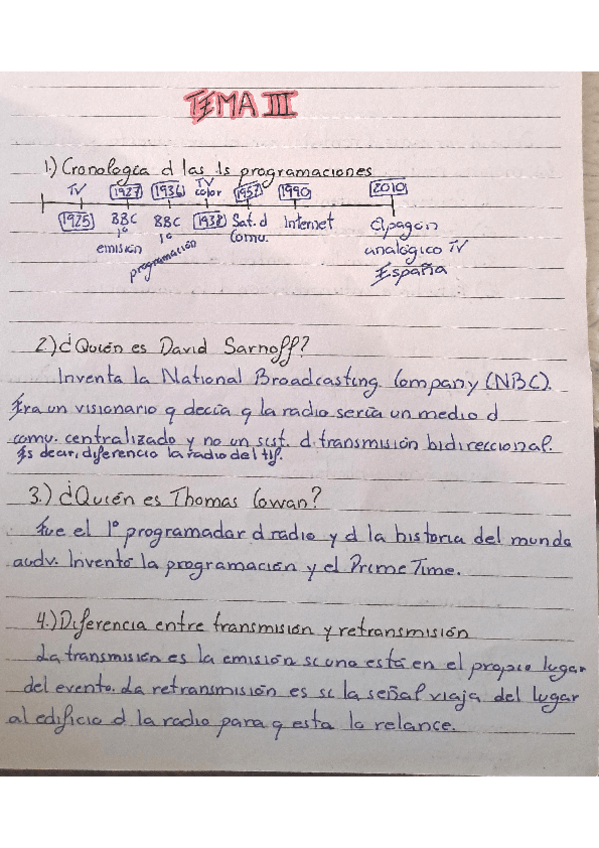 TEMA III
1.) Cronología d las 1s programaciones
TV 1927 1936 TV color 1957 1990 2010
1925 BBC 1º emisión BBC 1º programación 1938 Sat. d Comu. Internet Apagón analógico TV España
2) ¿Quién es David Sarnoff?
Inventa la National Broadcasting Company (NBC).
Era un visionario q decía q la radio sería un medio d
comu. centralizado y no un sist. d transmisión bidireccional.
Es decir, diferenció la radio del tlf.
3.) ¿Quién es Thomas Cowan?
Fue el 1º programador d radio y d la historia del mundo
audv. Inventó la programación y el Prime Time.
4.) Diferencia entre transmisión y retransmisión
La transmisión es la emisión si uno está en el propio lugar
del evento. La retransmisión es si la señal viaja del lugar
al edificio d la radio para q esta la relance.